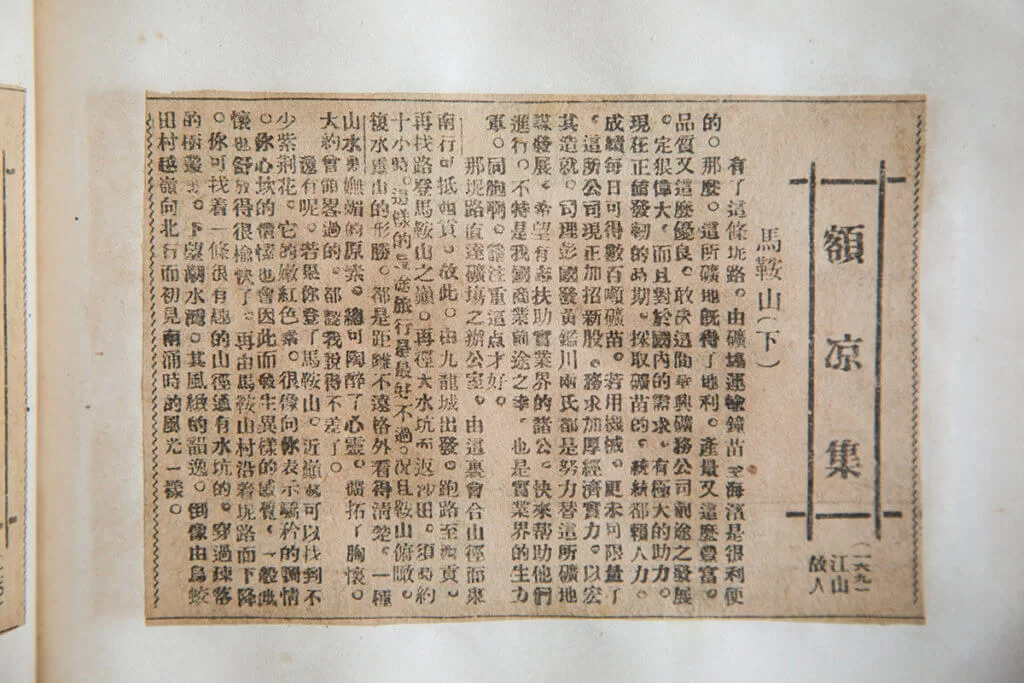 額凉集
(一六九)
江山
故人
馬鞍山(下)
有了這條坭路。由礦塲運輸鐘苗至海濱是很利便
的。那麼。這所礦地旣得了地利。產量又這麼豐富。
品質又這麼優良。敢决這間華興礦務公司前途之發展
。定很偉大。而且對於國內的需求。有極大的助力。
現在正値發動的時期。採取礦苗的。統統都賴人力。
成績每日可得數百噸礦苗。若用機械。更未可限量了
。這所公司現正加招新股。務求加厚經濟實力。以宏
其造就。司理彭國發黃鑑川兩氏都是努力替這所礦地
謀發展。希望有志扶助實業界的諸公。快來帮助他們
進行。不特是我國商業前途之幸。也是實業界的生力
軍。同胞啊。請注重這点才好。
那坭路直達礦塲之辦公室。由這裏會合山徑而東
南行可抵貢。故此。由九龍城出發。跑路至貢。
再找路登馬鞍山之巓。再徑大水坑而返沙田。須時約
十小時。這樣的長途旅行是最好不過。况且鞍山俯瞰。
複水重山的形勝。都是距離不遠格外看得淸楚。一種
山水與嫵媚的原素。總可陶醉了心靈。拓了胸懷。
大約會領畧過的。都說我說得不差了。
還有呢。若果你登了馬鞍山。近巔處可以找到不
少紫荆花。它的嫩紅色素。很像向你表示驕矜的獨情
。你心坎的情也會因此而發生異樣的感覺。一般
懷也舒放得很愉快了。再由馬鞍山村沿着坭路而下降
。你可找着一條很有趣的山徑通有水坑的。穿過疎落
的樹叢裏。下望潮水灣。其風緻的韶逸。倒像由烏蛟
田村越嶺向北行而初見南涌時的風光一樣。